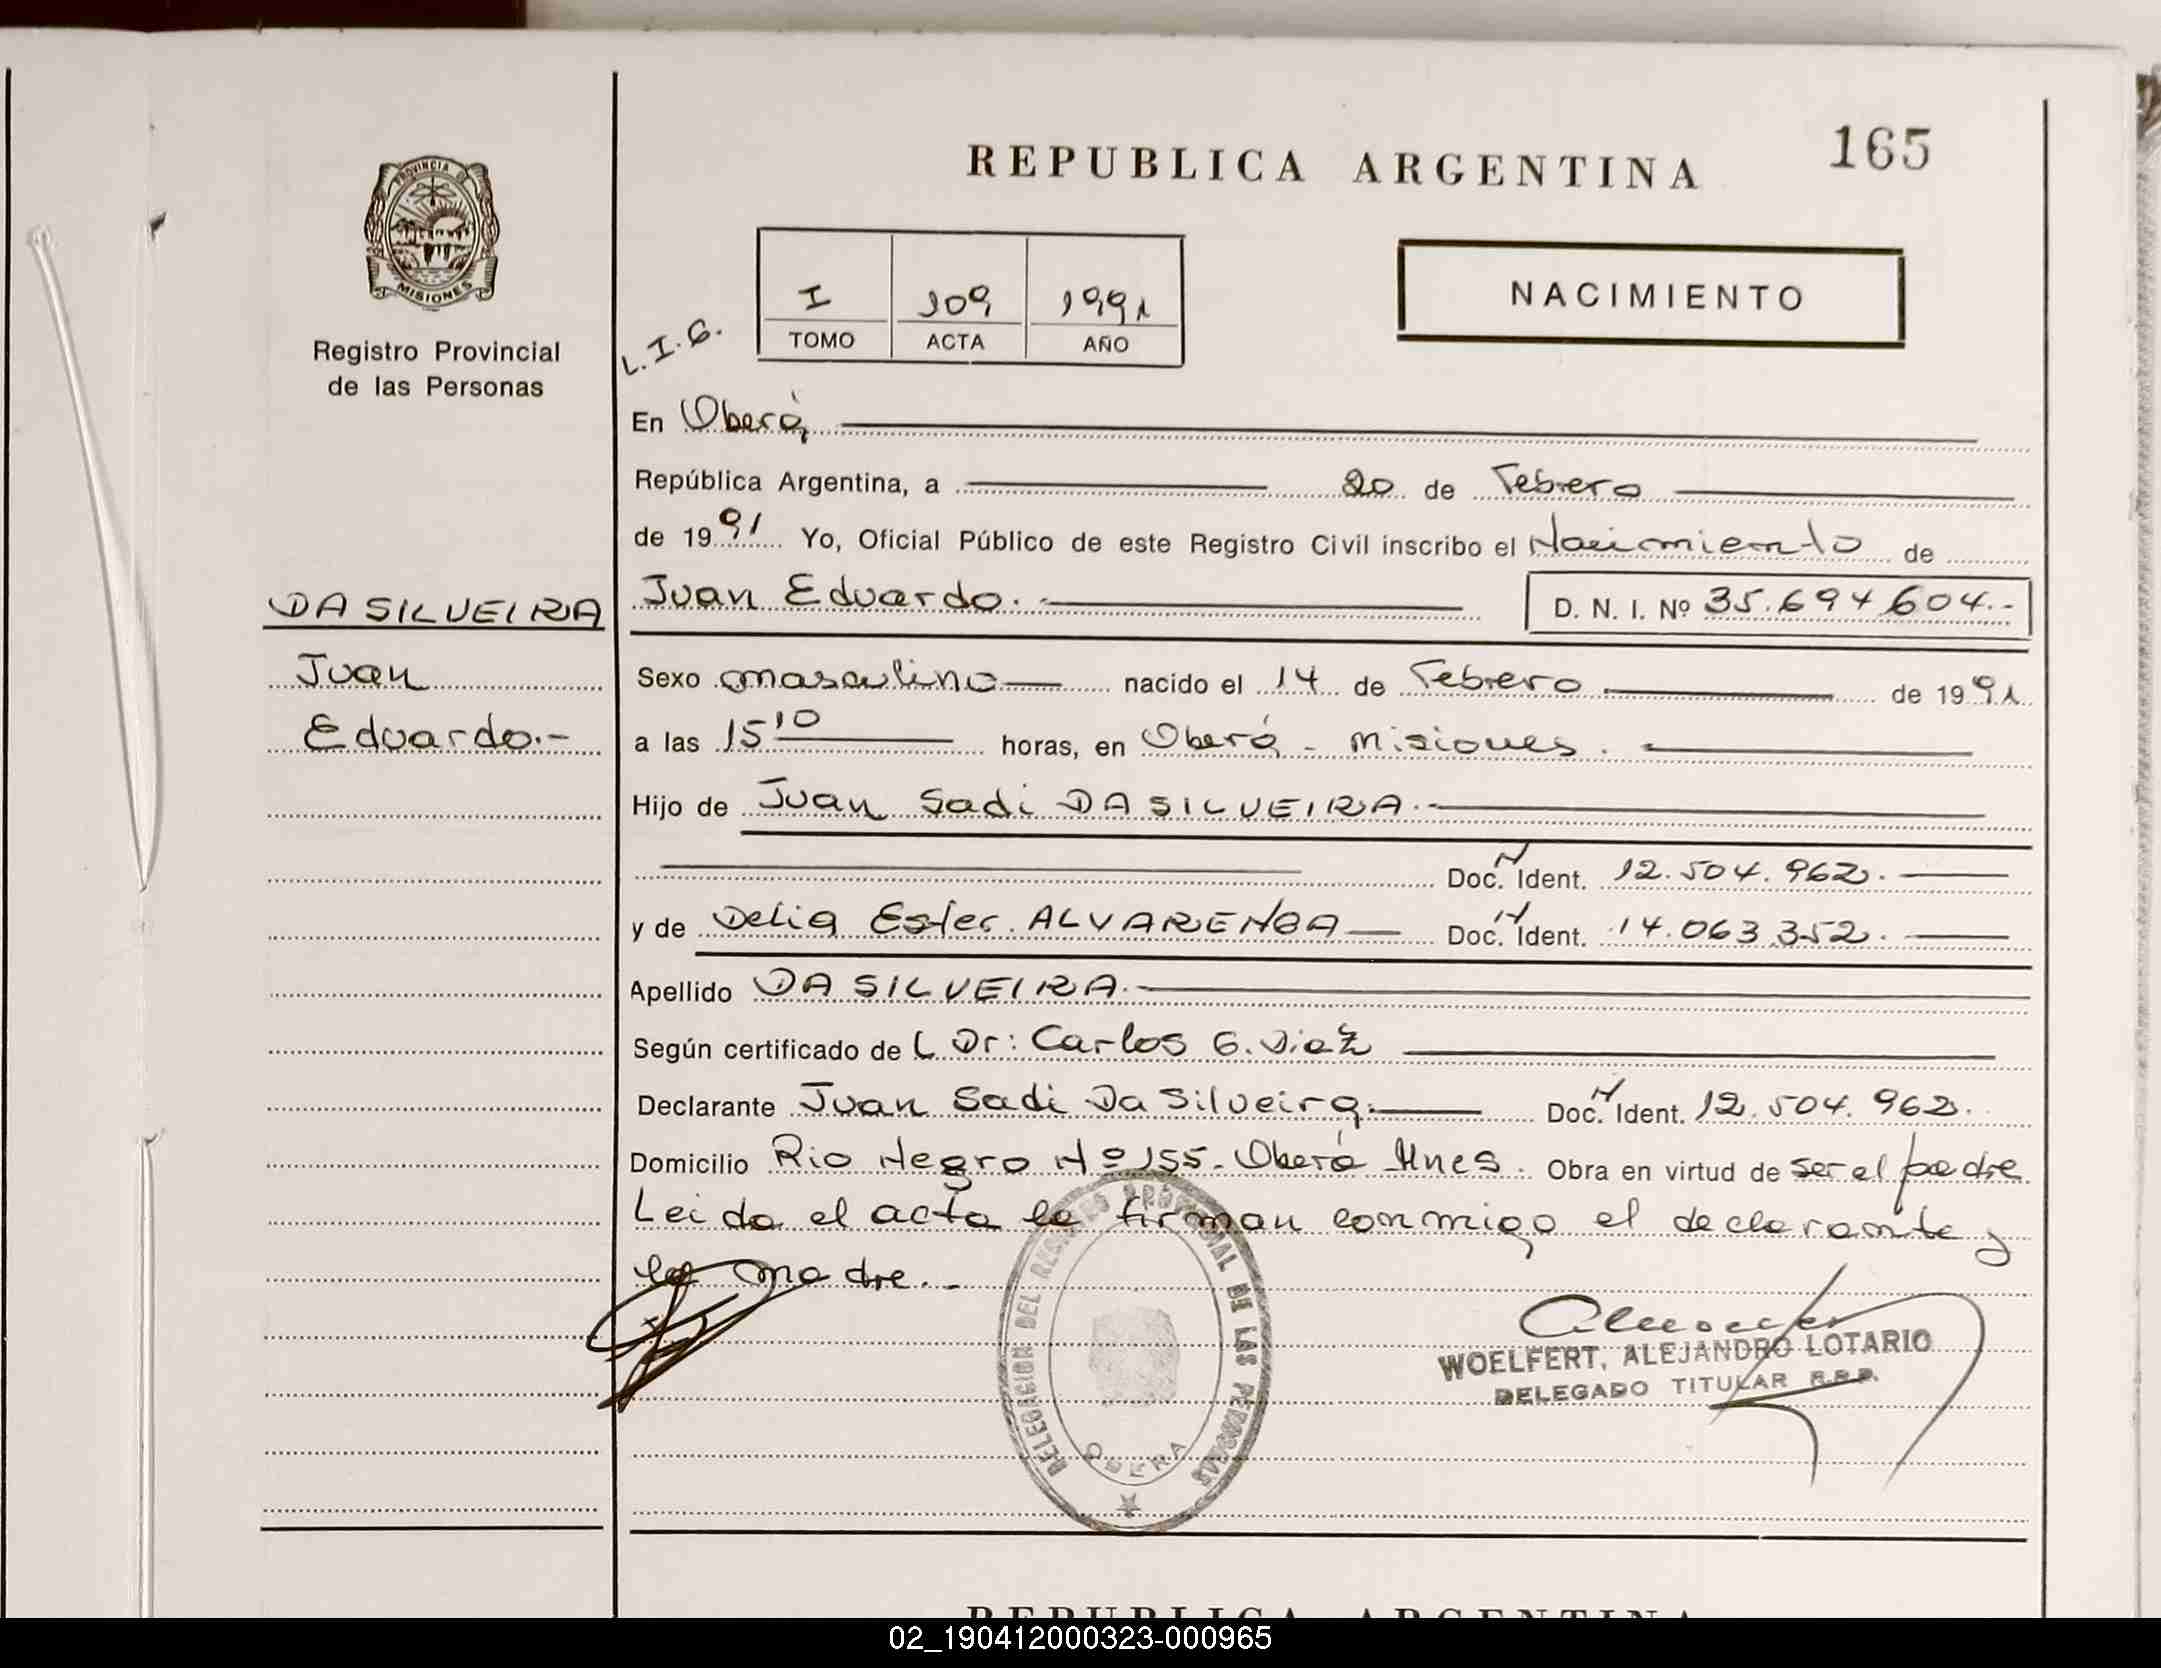 REPUBLICA ARGENTINA
165
PROVINCIA DE
MISIONES
Registro Provincial
de las Personas
L.I.G.
I 109 1991
TOMO ACTA AÑO
NACIMIENTO
En Oberá,
República Argentina, a 20 de Febrero
de 1991 Yo, Oficial Público de este Registro Civil inscribo el Nacimiento de
DA SILVEIRA Juan Eduardo. D. N. I. Nº 35.694.604.-
Juan Sexo masculino nacido el 14 de Febrero de 1991
Eduardo.- a las 15 10 horas, en Oberá - Misiones.
Hijo de Juan Sadi DA SILVEIRA.-
Doc. N Ident. 12.504.962.
y de Delia Ester ALVARENGA Doc. N Ident. 14.063.352.
Apellido DA SILVEIRA.
Según certificado de L Dr: Carlos G. Diaz
Declarante Juan Sadi Da Silveira. Doc. N Ident. 12.504.962.
Domicilio Rio Negro Nº 155. Oberá Mnes. Obra en virtud de ser el padre
Leida el acta la firman conmigo el declarante y
la madre.-
DELEGACION DEL REGISTRO PROVINCIAL DE LAS PERSONAS
OBERA
WOELFERT, ALEJANDRO LOTARIO
DELEGADO TITULAR R.P.P.
REPUBLICA ARGENTINA
02_190412000323-000965